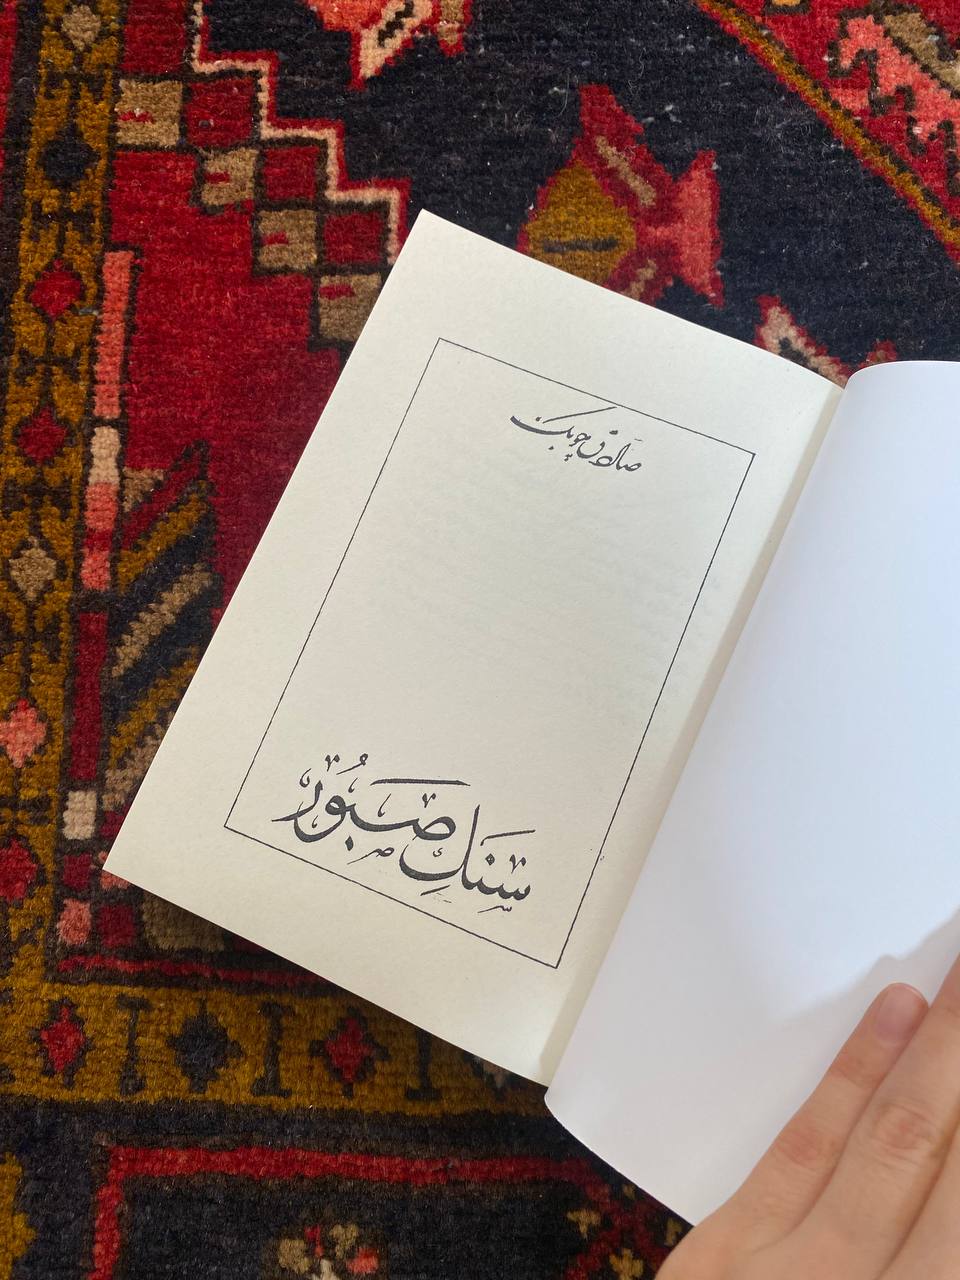 صادق چوبک
سنگِ صَبُور